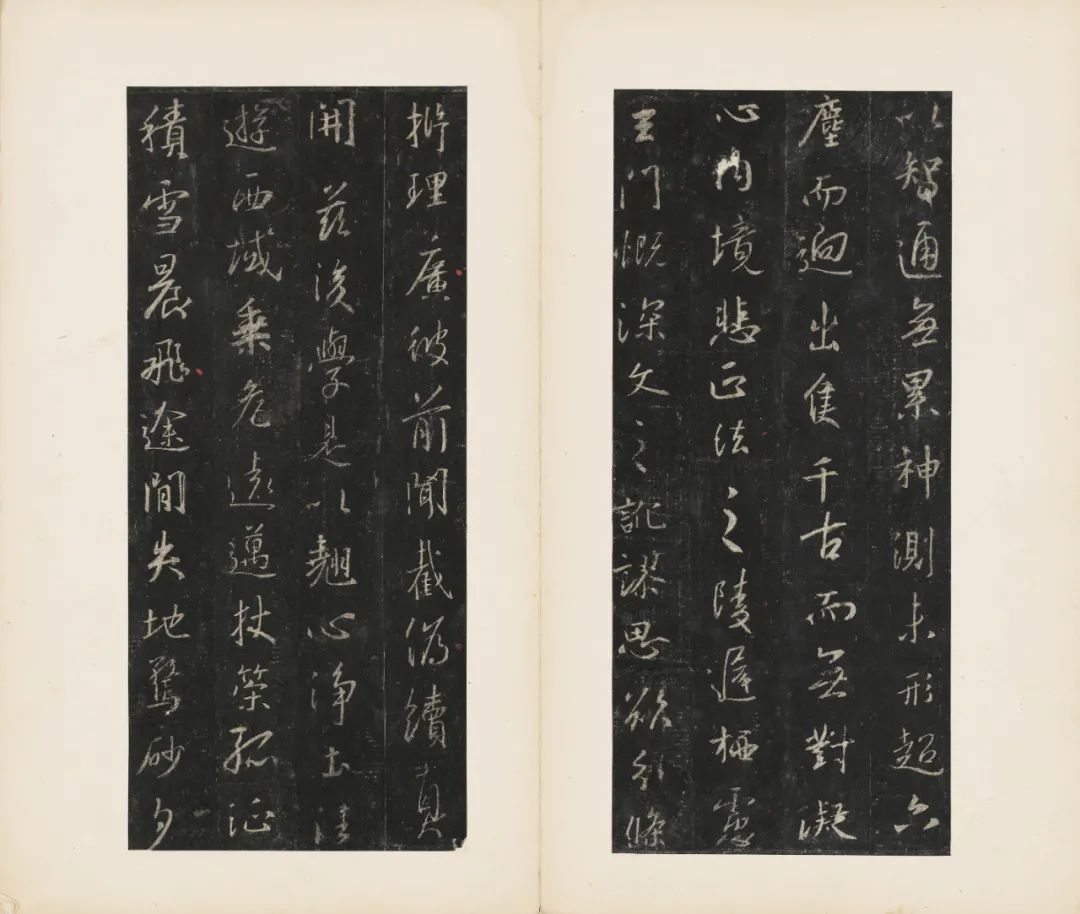 以智通無累神測未形超六
塵而迥出隻千古而無對凝
心內境悲正法之陵遲栖慮
玄門慨深文之訛謬思欲分條
析理廣彼前聞截偽續真
開茲後學是以翹心淨土法
遊西域乘危遠邁杖策孤征
積雪晨飛途間失地驚砂夕